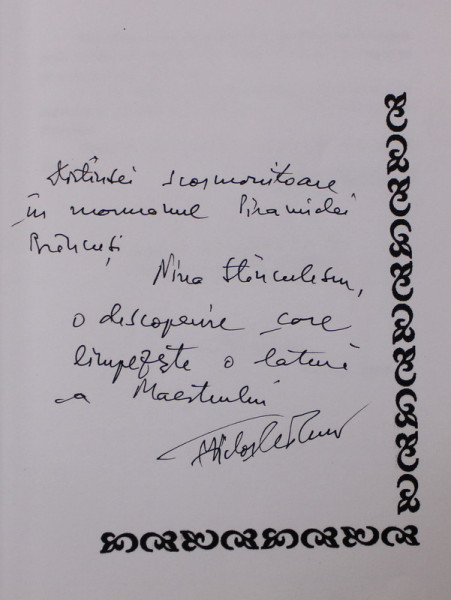 scormonitoare
în mormanul Piramidei
Brâncuși
Nina Stănculescu,
o descoperire care
limpezește o latură
a Maestrului